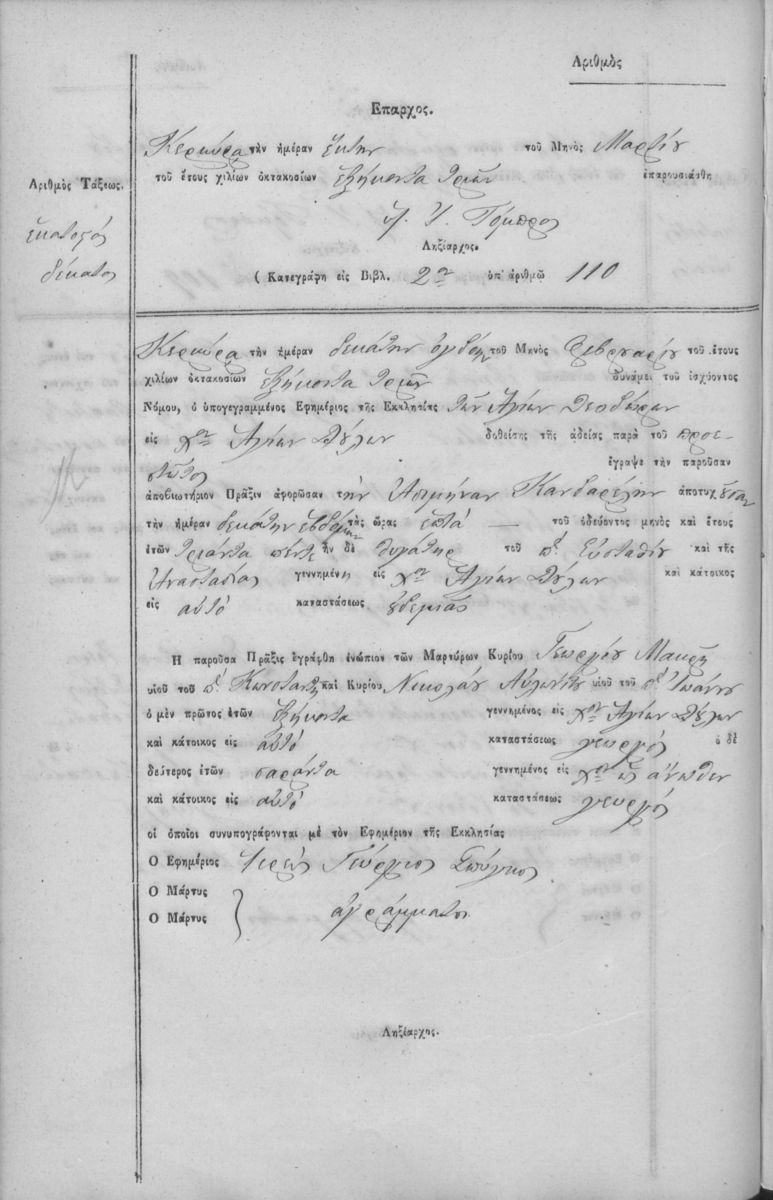 Αριθμὸς
Επαρχος.
Κερκύρα τὴν ἡμέραν ἕκτην τοῦ Μηνὸς Μαρτίου
τοῦ ἔτους χιλίων ὀκτακοσίων ἑξήκοντα τριῶν ἐπαρουσιάσθη
Αριθμὸς Τάξεως.
ἑκατοστὸς
δέκατος
Ληξίαρχος.
( Κατεγράφη εἰς Βιβλ. 2ον ὑπ' ἀριθμῷ 110
Κερκύρα τὴν ἡμέραν δεκάτην ὀγδόην τοῦ Μηνὸς Φεβρουαρίου τοῦ ἔτους
χιλίων ὀκτακοσίων ἑξήκοντα τριῶν δυνάμει τοῦ ἰσχύοντος
Νόμου, ὁ ὑπογεγραμμένος Εφημέριος τῆς Εκκλησίας τῶν Ἁγίων Θεοδώρων
εἰς χον Ἁγίων Δούλων δοθείσης τῆς ἀδείας παρὰ τοῦ προε-
στῶτος ἔγραψε τὴν παροῦσαν
ἀποβιωτήριον Πρᾶξιν ἀφορῶσαν τὴν Ἀσημήναν Κανδαρέλην ἀποτυχοῦσαν
τὴν ἡμέραν δεκάτην ἑβδόμην τὰς ὥρας ἑπτά — τοῦ ὁδεύοντος μηνὸς καὶ ἔτους
ἐτῶν τριάντα πέντε ἦν δὲ θυγάτηρ τοῦ πτ Εὐσταθίου καὶ τῆς
Ἀναστασίας γεννημένη εἰς χον Ἁγίων Δούλων καὶ κάτοικος
εἰς αὐτό καταστάσεως οὐδεμιᾶς
Η παροῦσα Πρᾶξις ἐγράφθη ἐνώπιον τῶν Μαρτύρων Κυρίου Γεωργίου Μακρῆ
υἱοῦ τοῦ πτ Κωνσταντῆ καὶ Κυρίου, Νικολάου Αὐλωνίτη υἱοῦ τοῦ πτ Ἰωάννου
ὁ μὲν πρῶτος ἐτῶν ἑξήκοντα γεννημένος εἰς χον Ἁγίων Δούλων
καὶ κάτοικος εἰς αὐτό καταστάσεως γεωργός ὁ δὲ
δεύτερος ἐτῶν σαράντα γεννημένος εἰς χον ὡς ἄνωθεν
καὶ κάτοικος εἰς αὐτό καταστάσεως γεωργός
οἱ ὁποῖοι συνυπογράφονται μὲ τὸν Εφημέριον τῆς Εκκλησίας
Ο Εφημέριος Ἱερεὺς Γεώργιος
Ο Μάρτυς
Ο Μάρτυς ἀγράμματοι
Ληξίαρχος.